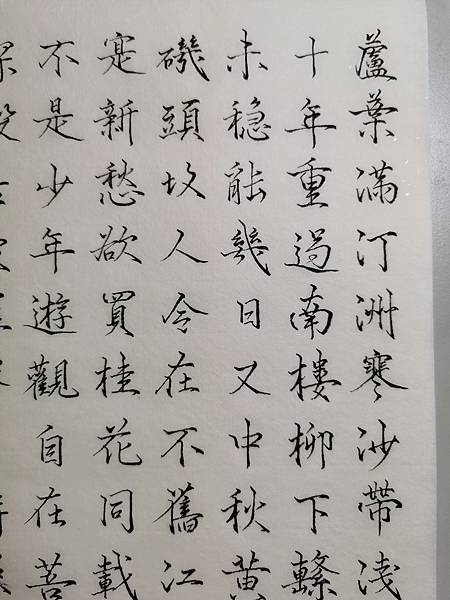 蘆葉滿汀洲寒沙帶浅
十年重過南樓柳下繫
未稳能幾日又中秋黄
磯頭故人今在不舊江
寔新愁欲買桂花同載
不是少年遊觀自在菩